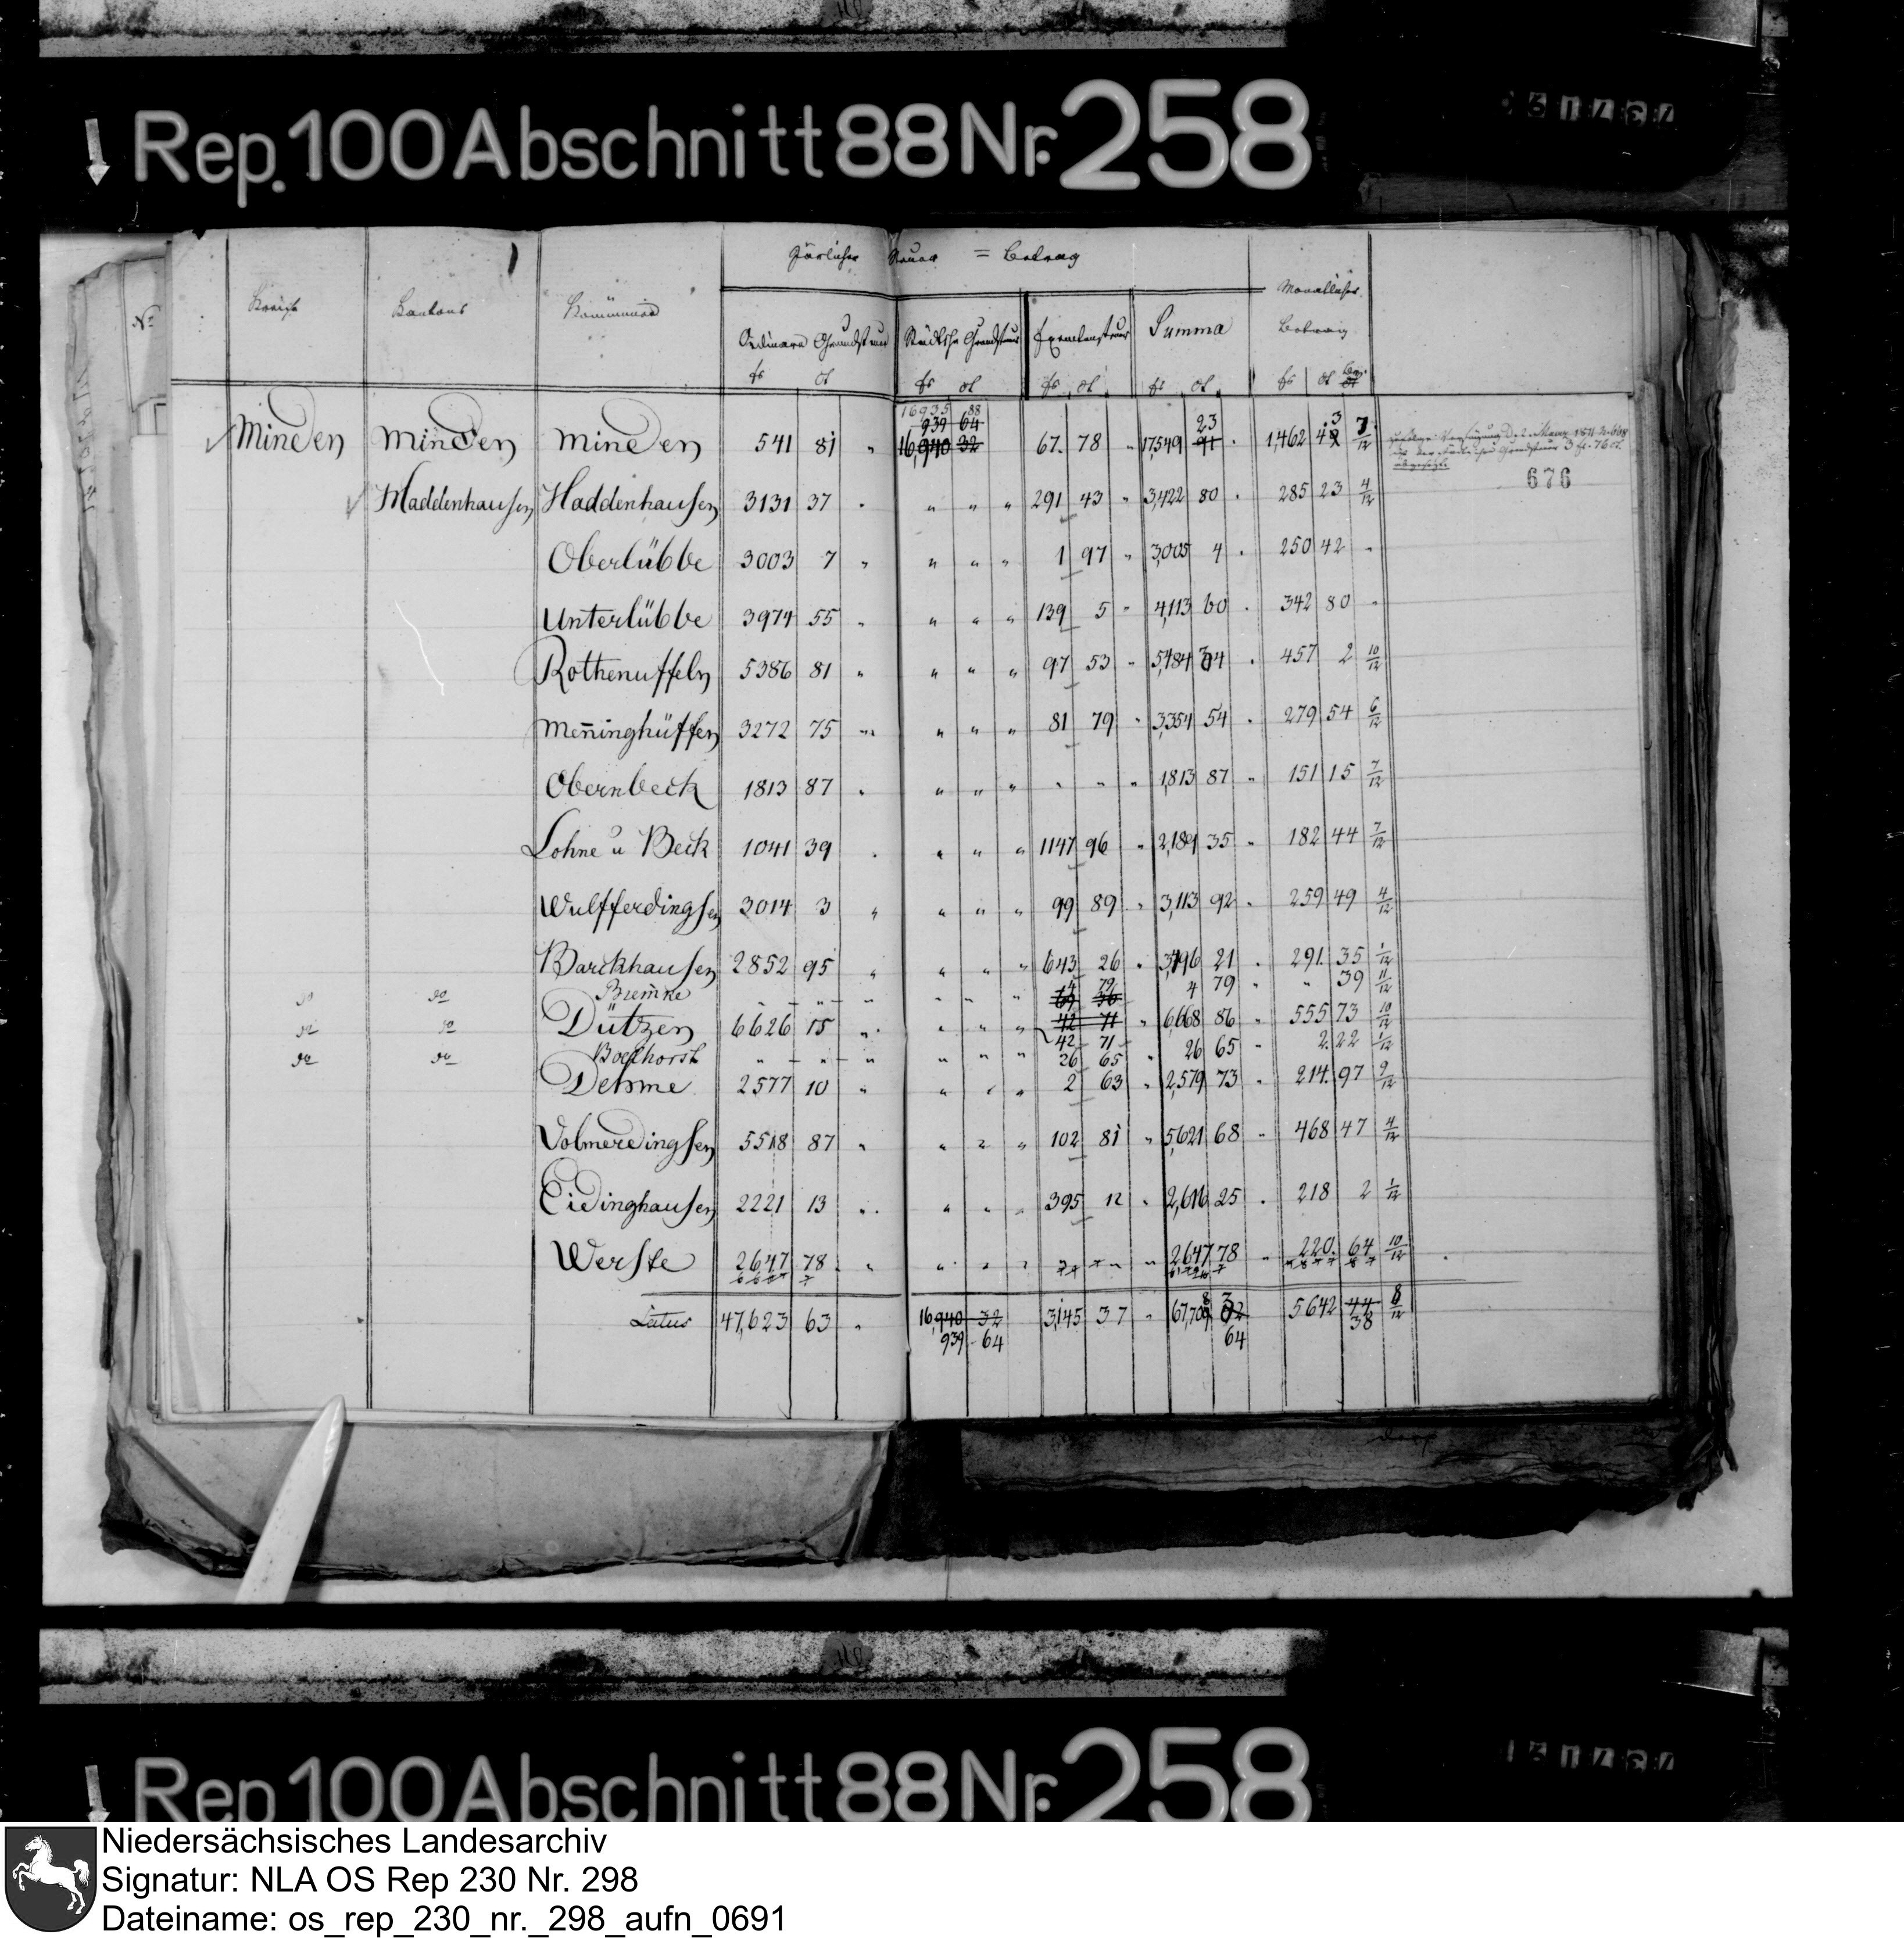 Rep. 100 Abschnitt 88 Nr. 258
Järlicher Steuer = Betrag
Monatlicher Betrag
No
Kreise Kantons Kommunen
Ordinare Grundsteuer Städtsche Grundsteuer Exemtensteuer Summa
fr ct fr ct fr ct fr ct fr ct
16935 88
939 64 23 3
Minden Minden Minden 541 81 " 16,940 32 67. 78 " 17,549 91 1,462 42 7/12
676
Haddenhausen Haddenhausen 3131 37 " " " " 291 43 " 3,422 80 285 23 4/12
Oberlübbe 3003 7 " " " " 1 97 " 3,005 4 250 42 "
Unterlübbe 3974 55 " " " " 139 5 " 4,113 60 342 80 "
Rothenuffeln 5386 81 " " " " 97 53 " 5,484 34 457 2 10/12
Men̄inghüffen 3272 75 " " " " 81 79 " 3,354 54 279 54 6/12
Obernbeck 1813 87 " " " " " " " 1,813 87 " 151 15 7/12
Lohne u Beck 1041 39 " " " " 1147 96 " 2,189 35 " 182 44 7/12
Wulfferdingsen 3014 3 " " " " 99 89 " 3,113 92 259 49 4/12
Barckhausen 2852 95 " " " " 643 26 " 3,496 21 291 35 1/12
do do Brem̄ke " " " " " " 4 79 4 79 " " 39 11/12
69 36
do do Dützen 6626 15 " " " " 42 71 " 6,668 86 " 555 73 10/12
42 71
do do Boelhorst " " " " " " 26 65 " 26 65 " 2. 22 1/12
Dehme 2577 10 " " " " 2 63 " 2,579 73 " 214. 97 9/12
Volmerdingsen 5518 87 " " " " 102 81 " 5,621 68 " 468 47 4/12
Eidinghausen 2221 13 " " " " 395 12 " 2,616 25 218 2 1/12
Werste 2647 78 " " " " " " " 2647 78 " 220. 64 10/12
Latus 47,623 63 " 16,940 32 3,145 37 " 67,709 32 5642 44 8/12
939 64 8 64 38
Rep. 100 Abschnitt 88 Nr. 258
Niedersächsisches Landesarchiv
Signatur: NLA OS Rep 230 Nr. 298
Dateiname: os_rep_230_nr._298_aufn_0691